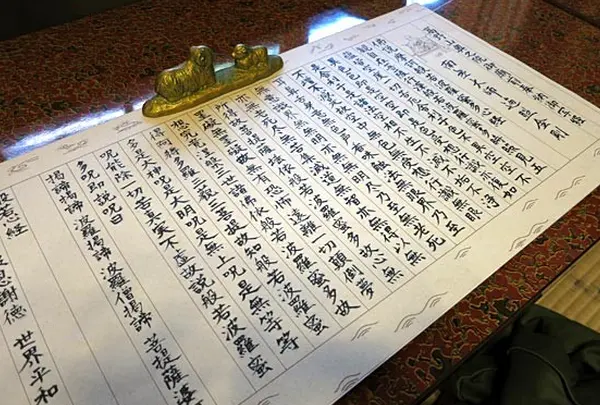 南無大師遍照金剛
仏説摩訶般若波羅蜜多心経
観自在菩薩行深般若波羅蜜多時照見五
蘊皆空度一切苦厄舎利子色不異空空不
異色色即是空空即是色受想行識亦復如
是舎利子是諸法空相不生不滅不垢不浄
不増不減是故空中無色無受想行識無眼
耳鼻舌身意無色声香味触法無眼界乃至
無意識界無無明亦無無明尽乃至無老死
亦無老死尽無苦集滅道無智亦無得以無
所得故菩提薩埵依般若波羅蜜多故心無
罣礙無罣礙故無有恐怖遠離一切顛倒夢
想究竟涅槃三世諸仏依般若波羅蜜多故
得阿耨多羅三藐三菩提故知般若波羅蜜
多是大神呪是大明呪是無上呪是無等等
呪能除一切苦真実不虚故説般若波羅蜜
多呪即説呪曰
羯諦羯諦 波羅羯諦 波羅僧羯諦 菩提薩婆
般若心経
恩謝徳 世界平和